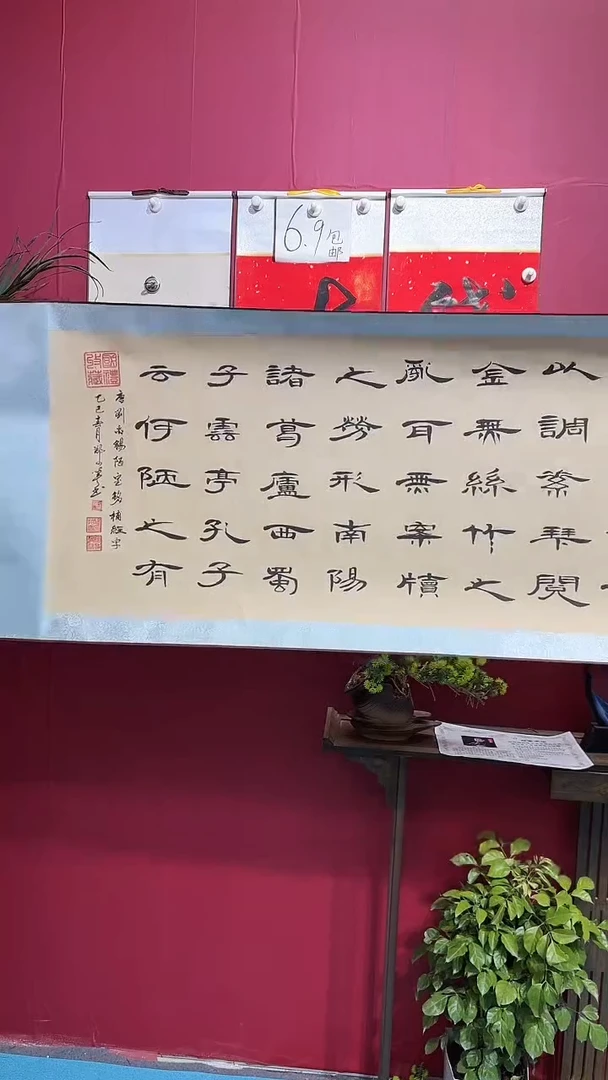 6.9包邮
以調素琴閱
金無絲竹之
亂耳無案牘
之勞形南陽
諸葛廬西蜀
子雲亭孔子
云何陋之有
唐劉禹錫陋室銘 補經字
乙巳春月